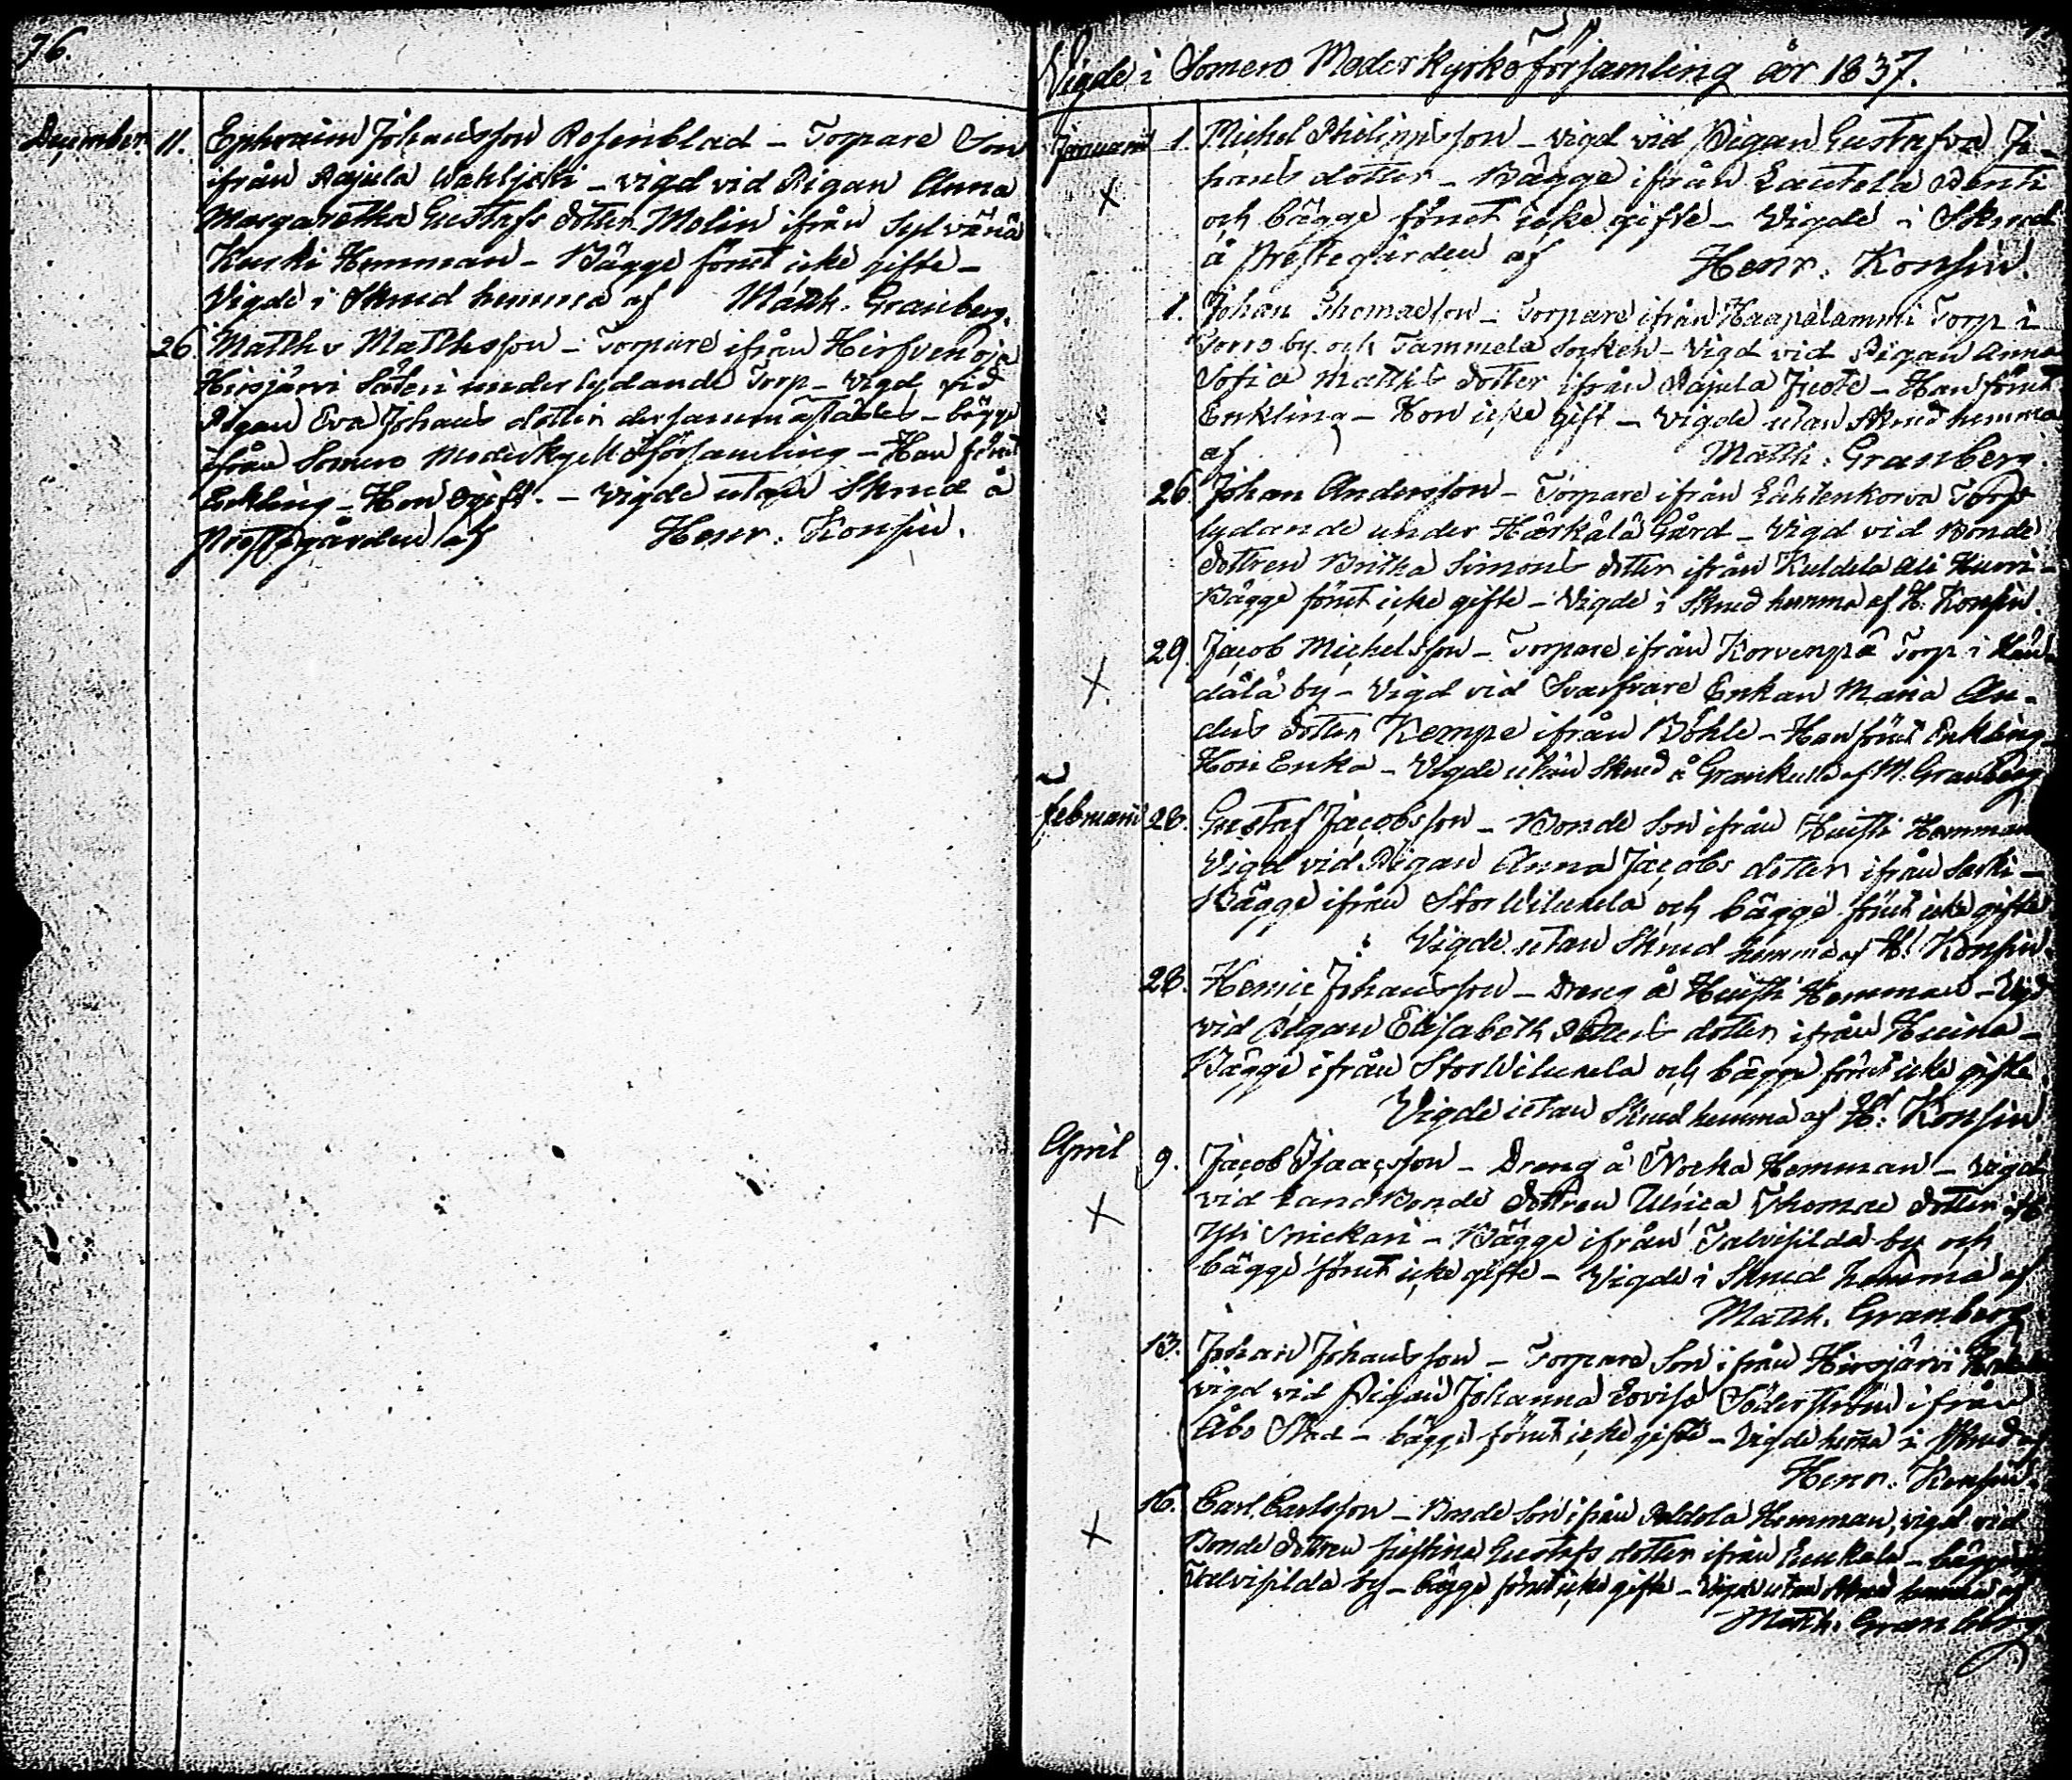 76.
December 11. Ephraim Johansson Rosenblad – Torpare Son
ifrån Rajula Wahljoki – vigd vid Pigan Anna
Margaretha Gustafs dotter Molin ifrån Sylvänä
Kuski Hemman – Bägge förut icke gifte –
Vigde i Skrud hemma af Matth. Granberg.
26. Matths Matthsson – Torpare ifrån Hirfvenoja
Hirsjärvi Säteri underlydande Torp – vigd vid
Pigan Eva Johans dotter dersammastädes – bägge
ifrån Somero Moderkyrkoförsamling – Han förut
Enkling – Hon ogift. – Vigde utan Skrud å
Prestegården af Henr. Konsin.
Vigde i Somero Moderkyrkoförsamling år 1837.
Januarii 1. Michel Philippsson – vigd vid Pigan Gustafva Jo-
hans dotter – Bägge ifrån Lautela Penti
och bägge förut icke gifte – Vigde i Skrud
å Prestegården af Henr. Konsin.
1. Johan Thomasson – Torpare ifrån Haapalammi Torp i
Torro by och Tammela Socken – Vigd vid Pigan Anna
Sofia Matths dotter ifrån Rajula – Han förut
Enkling – Hon icke gift – Vigde utan Skrud hemma
af Matth. Granberg.
26. Johan Andersson – Torpare ifrån Lähtenkorva Torp
lydande under Härkälä Gård – Vigd vid Bonde
dottren Britha Simons dotter ifrån Kuldela Ali
Bägge förut icke gifte – Vigde i Skrud hemma af H. Konsin.
29. Jacob Michelsson – Torpare ifrån Korvenpä Torp i
dälä by – Vigd vid Svarfvare Enkan Maria An-
ders dotter Kempe ifrån Böhle – Han förut Enkling –
Hon Enka – Vigde utan Skrud å Grankulla af M. Granberg
Februarii 28. Gustaf Jacobsson – Bonde Son ifrån Huisti Hemman
Vigd vid Pigan Anna Jacobs dotter ifrån –
Bägge ifrån StorWilumela och bägge förut icke gifte
Vigde utan Skrud hemma af H. Konsin.
28. Henric Johansson – Dreng å Huisti Hemman – Vigd
vid Pigan Elisabeth Petters dotter ifrån –
Bägge ifrån StorWilumela och bägge förut icke gifte
Vigde utan Skrud hemma af H. Konsin
April 9. Jacob Isaacsson – Dreng å Nocka Hemman – Vigd
vid LandBonde dottren Ulrica Thomae dotter ifr.
Yli Snickari – Bägge ifrån Talvisilda by och
bägge förut icke gifte – Vigde i Skrud hemma af
Matth. Granberg
13. Johan Johansson – Torpare Son ifrån Hirsjärvi
vigd vid Pigan Johanna Lovisa Söderström ifrån
Åbo Stad – bägge förut icke gifte – Vigde hema i Skrud af
Henr. Konsin.
16. Carl Carlsson – Bonde Son ifrån Paldola Hemman, vigd vid
Bonde dottren Justina Gustafs dotter ifrån – bägge
Talvisilda by – bägge förut icke gifte – Vigde utan Skrud hemma af
Matth. Granberg.